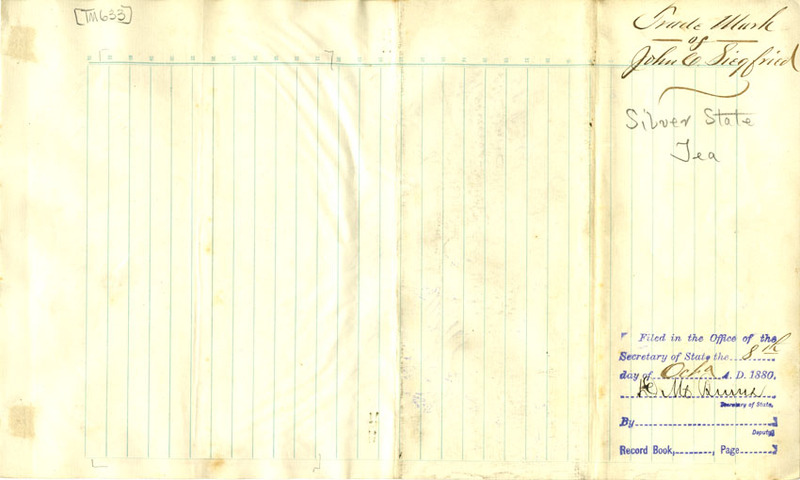 [TM633]
Trade Mark
of
John C Siegfried
Silver State
Tea
Filed in the Office of the
Secretary of State the 8th
day of Oct A. D. 1880.
Secretary of State.
By
Deputy
Record Book, Page